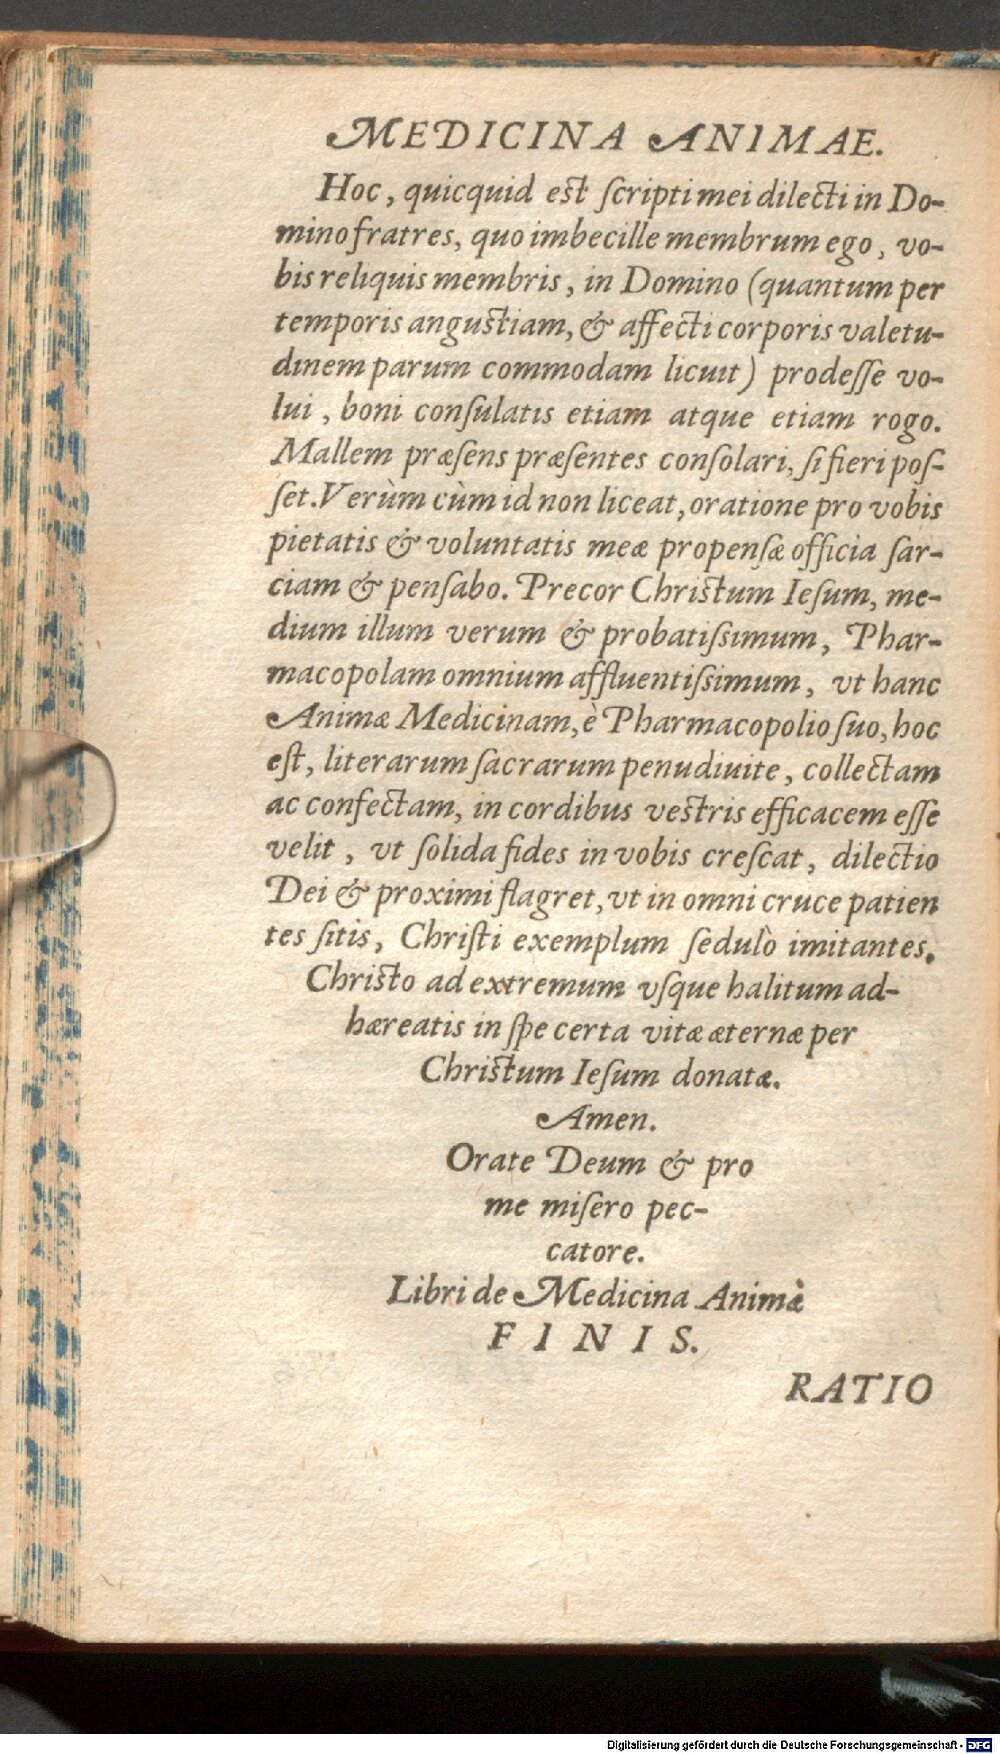 MEDICINA ANIMAE.
Hoc, quicquid est ſcripti mei dilecti in Do-
mino fratres, quo imbecille membrum ego, vo-
bis reliquis membris, in Domino (quantum per
temporis angustiam, & affecti corporis valetu-
dinem parum commodam licuit) prodeſſe vo-
lui, boni conſulatis etiam atque etiam rogo.
Mallem præſens præſentes conſolari, ſi fieri poſ-
ſet. Verùm cùm id non liceat, oratione pro vobis
pietatis & voluntatis meæ propenſæ officia ſar-
ciam & penſabo. Precor Christum Ieſum, me-
dium illum verum & probatiſsimum, Phar-
macopolam omnium affluentiſsimum, vt hanc
Animæ Medicinam, è Pharmacopolio ſuo, hoc
eſt, literarum ſacrarum penu diuite, collectam
ac confectam, in cordibus vestris efficacem eſſe
velit, vt ſolida fides in vobis creſcat, dilectio
Dei & proximi flagret, vt in omni cruce patien
tes ſitis, Chriſti exemplum ſedulò imitantes.
Christo ad extremum vſque halitum ad-
hæreatis in ſpe certa vitæ æternæ per
Christum Ieſum donatæ.
Amen.
Orate Deum & pro
me miſero pec-
catore.
Libri de Medicina Animæ
FINIS.
RATIO
Digitalisierung gefördert durch die Deutsche Forschungsgemeinschaft - DFG